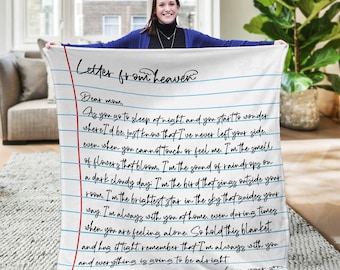 Letter from heaven
Dear mom,
As you go to sleep at night and you start to wonder
where I'd be, just know that I've never left your side,
even when you cannot touch or feel me. I'm the smell
of flowers that bloom. I'm the sound of raindrops on
a dark cloudy day. I'm the bird that sings outside your
room. I'm the brightest star in the sky that guides your
way. I'm always with you at home, even during times
when you are feeling alone. So hold this blanket
and hug it tight, remember that I'm always with you
and everything is going to be alright.